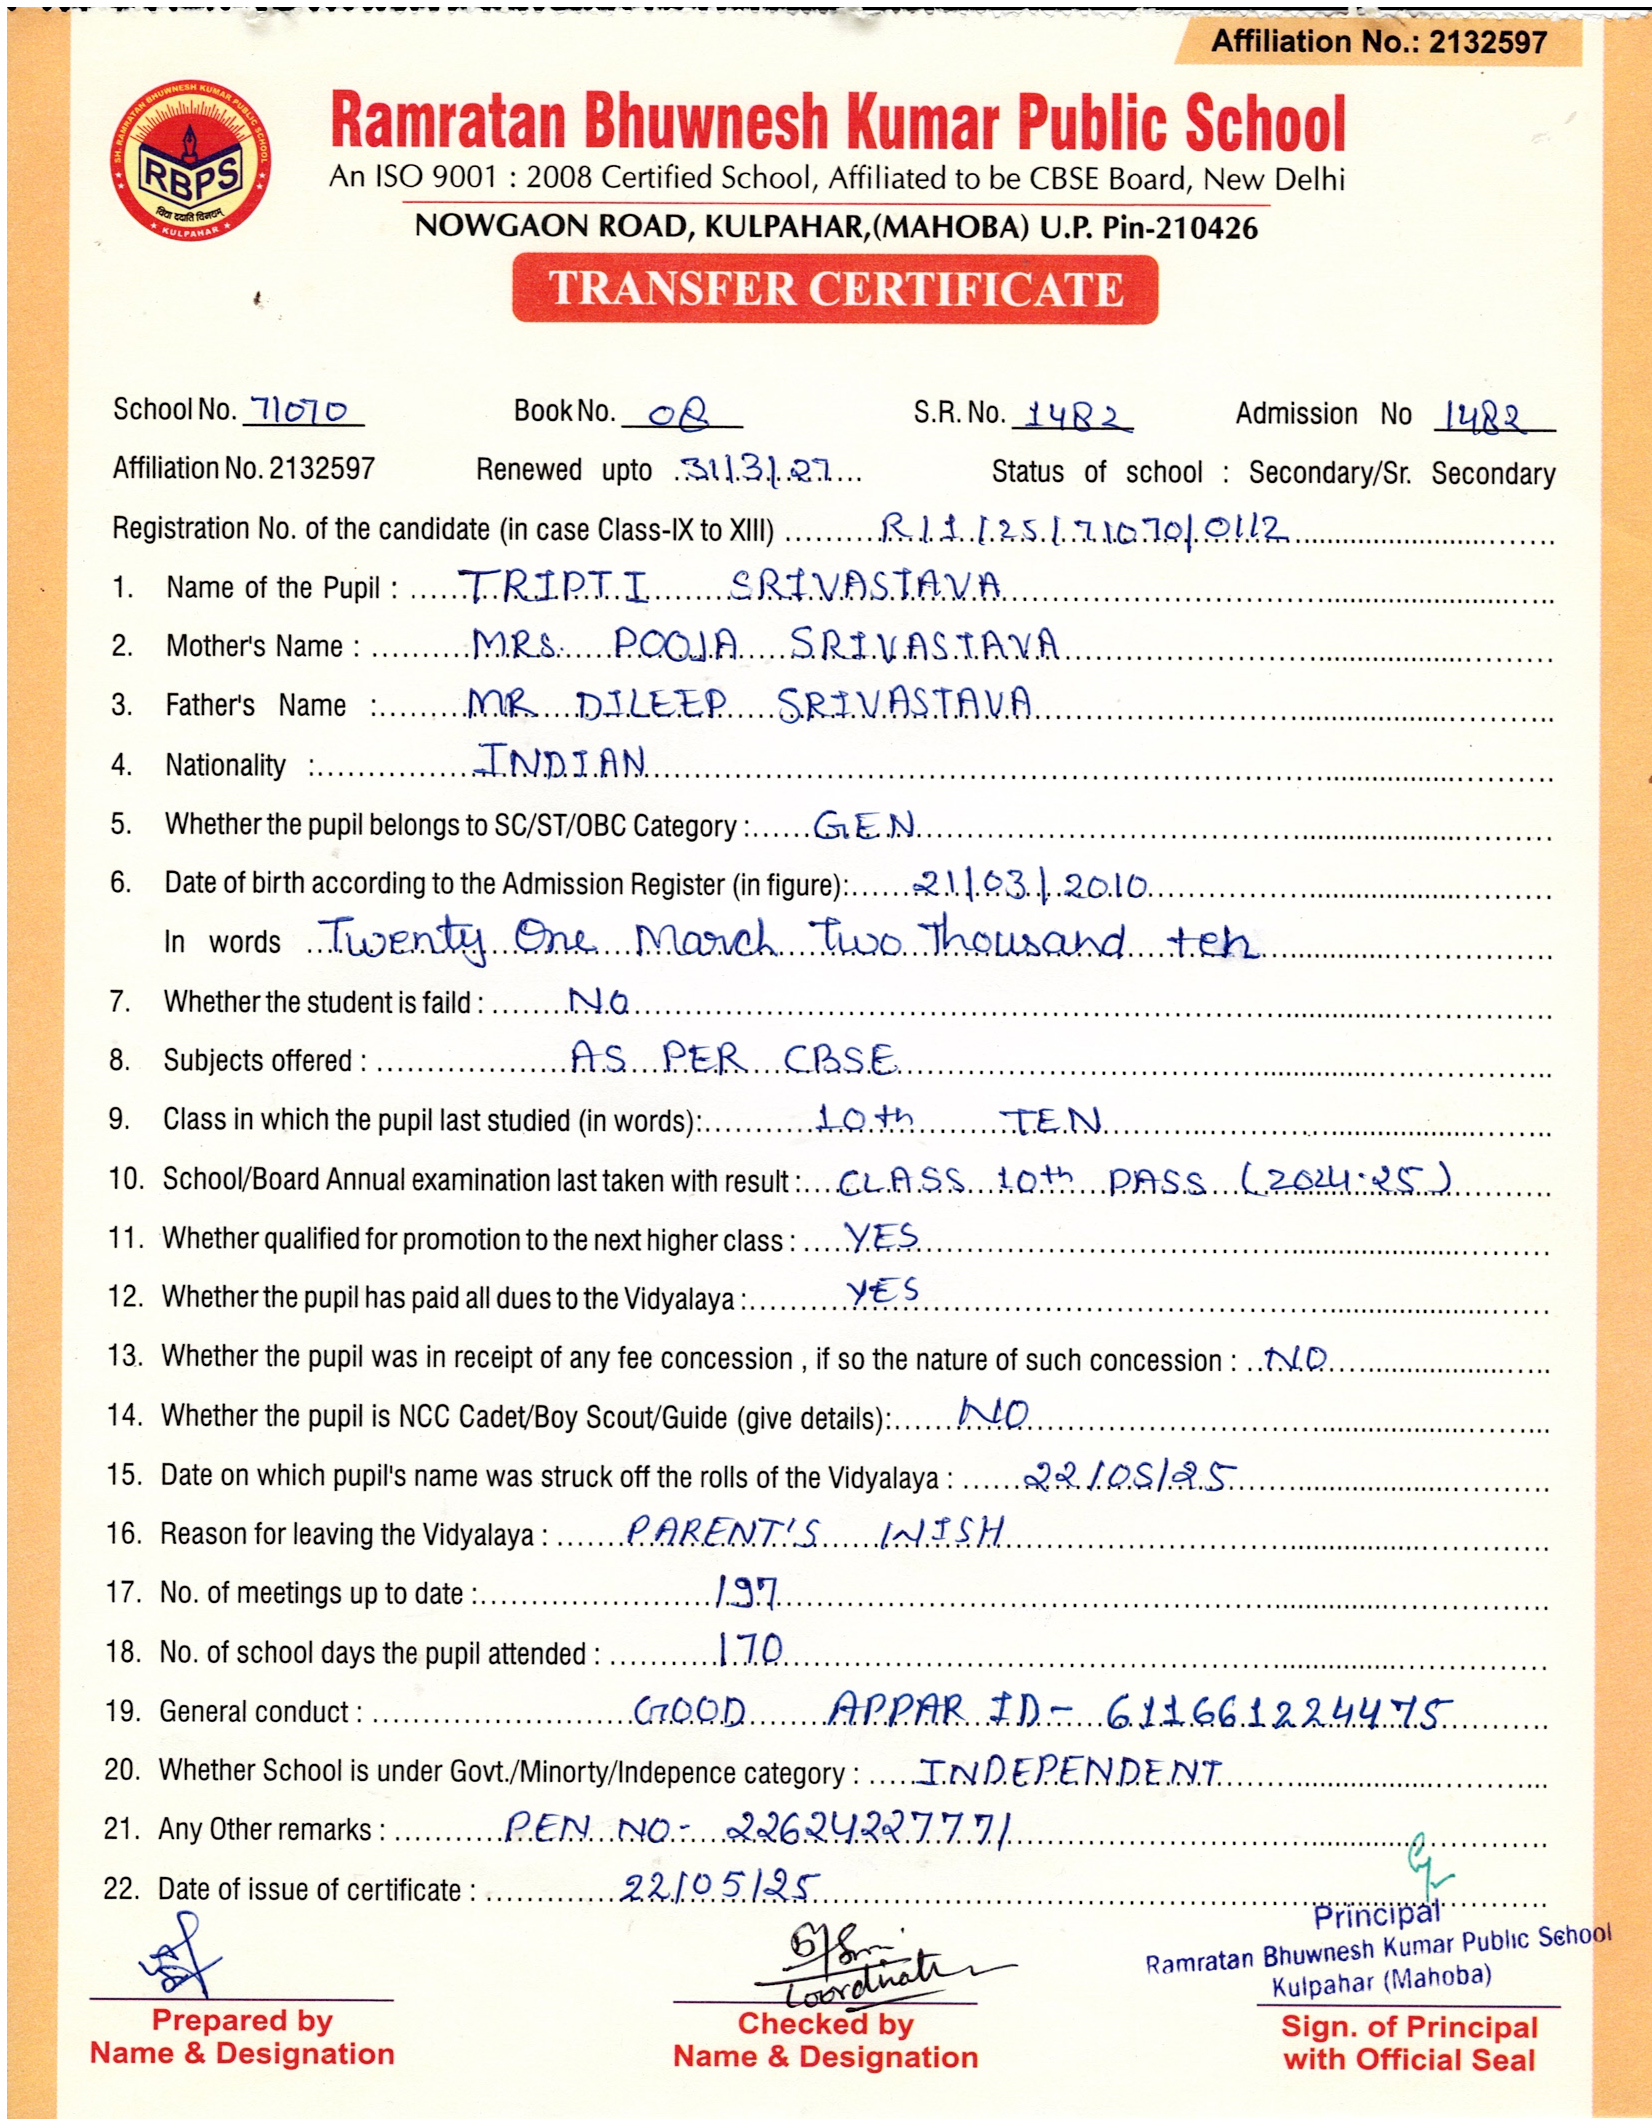 Affiliation No.: 2132597
SH. RAMRATAN BHUWNESH KUMAR PUBLIC SCHOOL
RBPS
विद्या ददाति विनयम्
KULPAHAR
Ramratan Bhuwnesh Kumar Public School
An ISO 9001 : 2008 Certified School, Affiliated to be CBSE Board, New Delhi
NOWGAON ROAD, KULPAHAR,(MAHOBA) U.P. Pin-210426
TRANSFER CERTIFICATE
School No. 71070 Book No. 08 S.R. No. 1482 Admission No 1482
Affiliation No. 2132597 Renewed upto 31/3/27 Status of school : Secondary/Sr. Secondary
Registration No. of the candidate (in case Class-IX to XIII) R/1/25/71070/0112
1. Name of the Pupil : TRIPTI SRIVASTAVA
2. Mother's Name : MRS. POOJA SRIVASTAVA
3. Father's Name : MR DILEEP SRIVASTAVA
4. Nationality : INDIAN
5. Whether the pupil belongs to SC/ST/OBC Category : GEN
6. Date of birth according to the Admission Register (in figure): 21/03/2010
In words Twenty One March Two Thousand ten
7. Whether the student is faild : NO
8. Subjects offered : AS PER CBSE
9. Class in which the pupil last studied (in words): 10th TEN
10. School/Board Annual examination last taken with result : CLASS 10th PASS (2024-25)
11. Whether qualified for promotion to the next higher class : YES
12. Whether the pupil has paid all dues to the Vidyalaya : YES
13. Whether the pupil was in receipt of any fee concession , if so the nature of such concession : NO
14. Whether the pupil is NCC Cadet/Boy Scout/Guide (give details): NO
15. Date on which pupil's name was struck off the rolls of the Vidyalaya : 22/05/25
16. Reason for leaving the Vidyalaya : PARENT'S WISH
17. No. of meetings up to date : 197
18. No. of school days the pupil attended : 170
19. General conduct : GOOD APPAR ID- 611661224475
20. Whether School is under Govt./Minorty/Indepence category : INDEPENDENT
21. Any Other remarks : PEN NO- 22624227771
22. Date of issue of certificate : 22/05/25
Principal
Ramratan Bhuwnesh Kumar Public School
Kulpahar (Mahoba)
Prepared by
Name & Designation
Checked by
Name & Designation
Sign. of Principal
with Official Seal